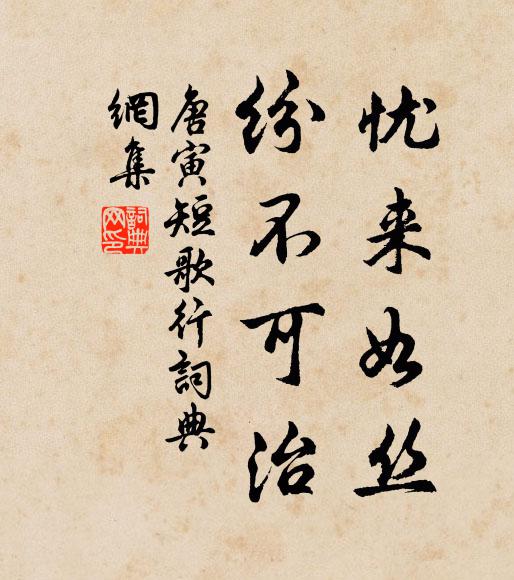 忧来如丝
纷不可治
唐寅短歌行词典
網集
詞典
网印